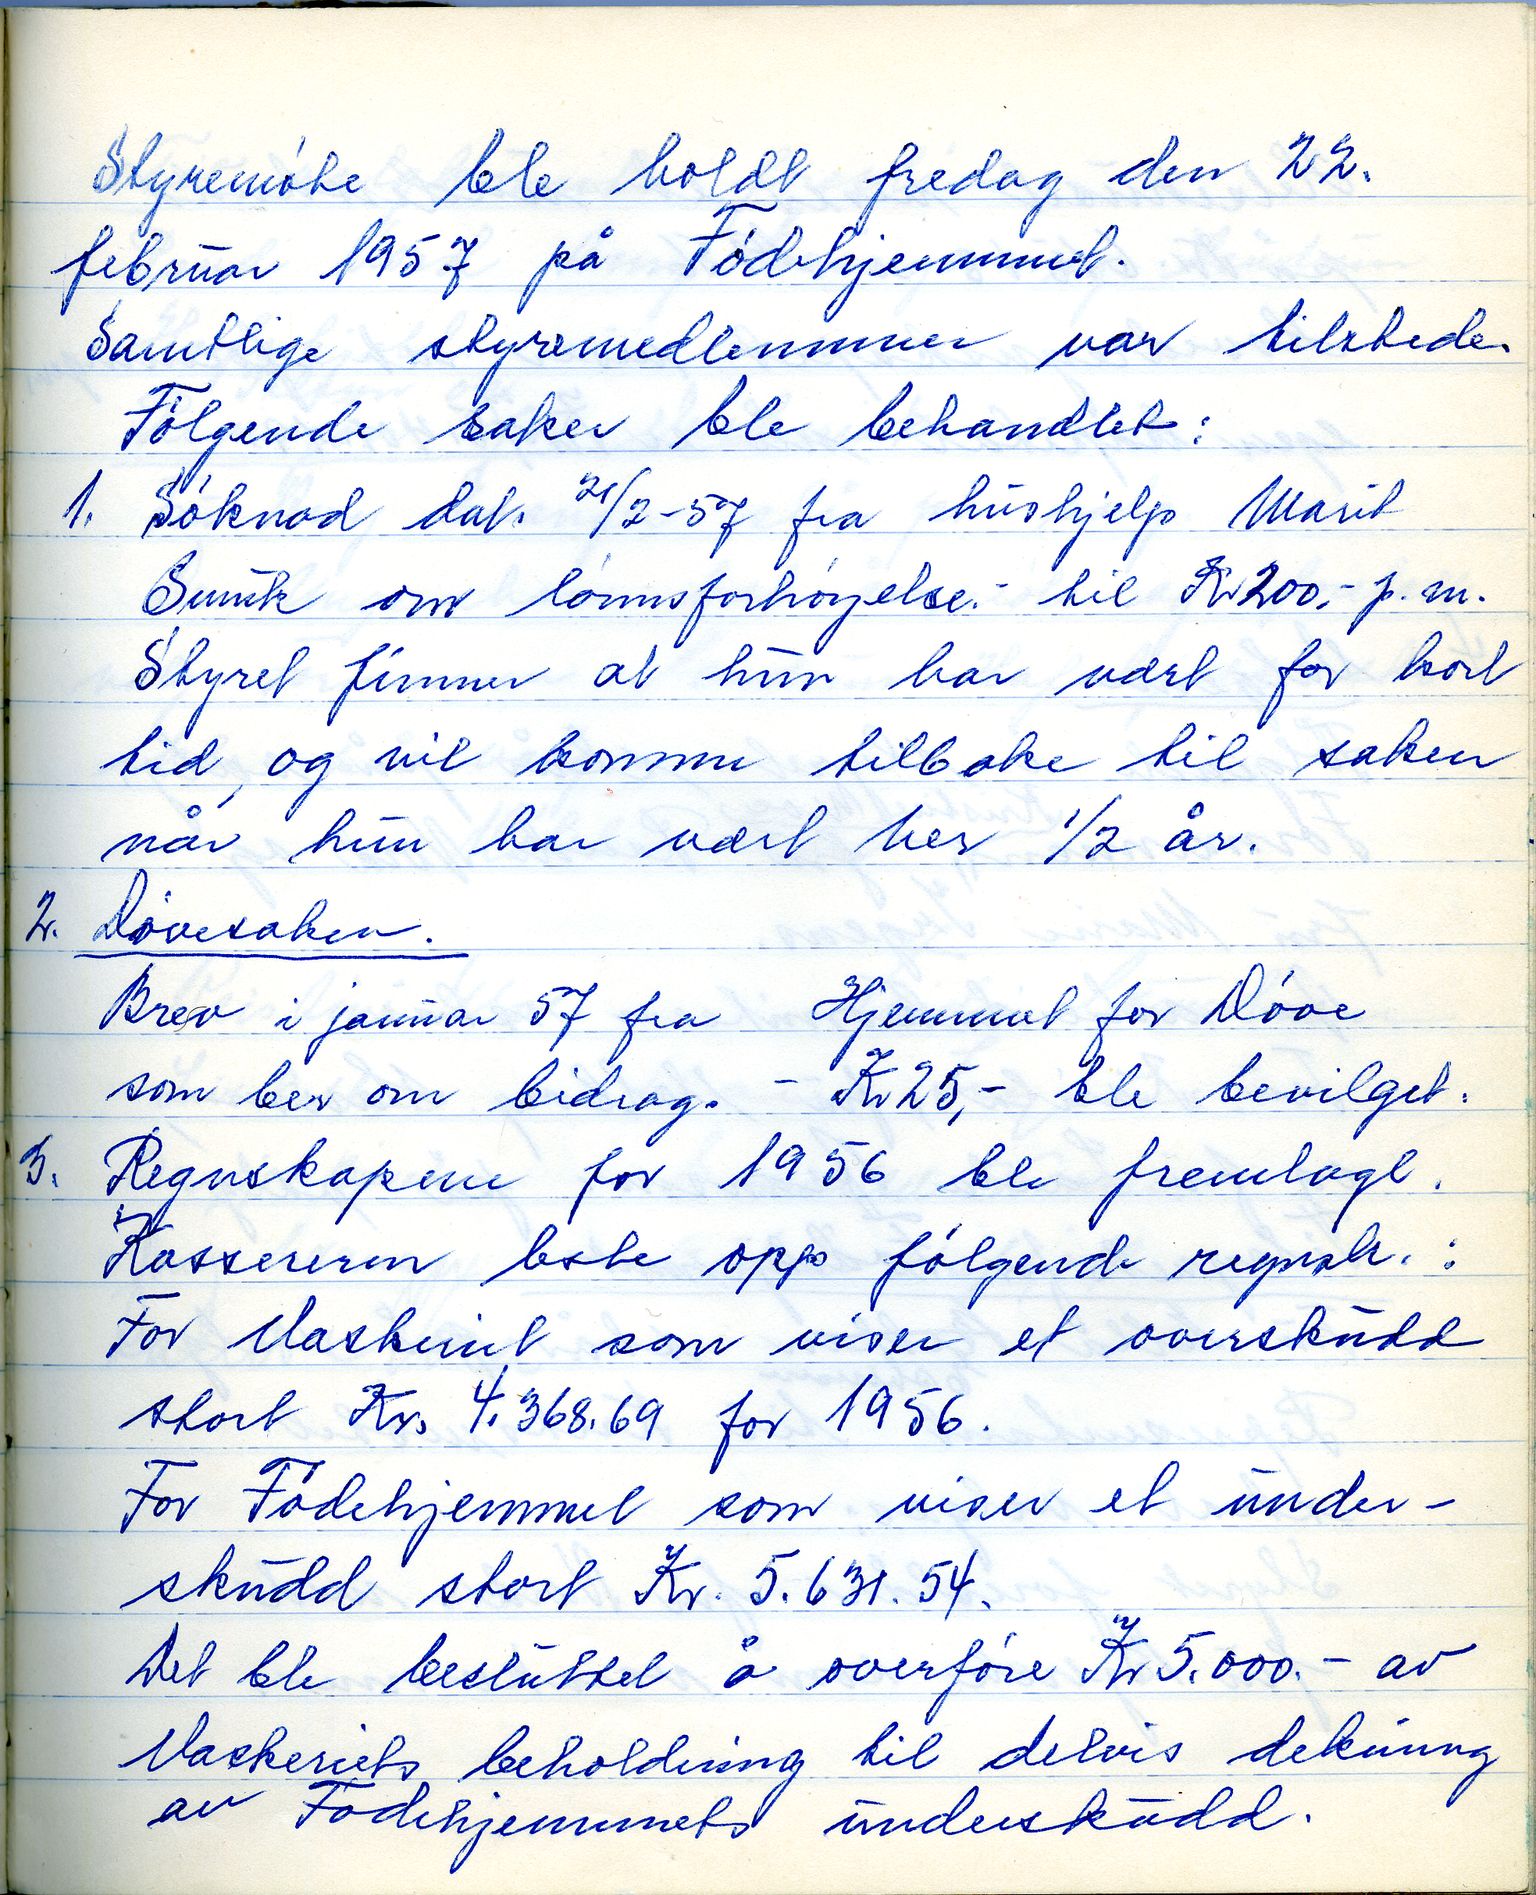 Styremöte ble holdt fredag den 22.
februar 1957 på Födehjemmet.
Samtlige styremedlemmer var tilstede.
Fölgende saker ble behandlet:
1. Söknad dat. 21/2-57 fra hushjelp Marit
om lönnsforhöyelse.- til Kr 200,- p.m.
Styret finner at hun har vært for kort
tid, og vil komme tilbake til saken
når hun har vært her 1/2 år.
2. Dövesaken.
Brev i januar 57 fra Hjemmet for Döve
som ber om bidrag. - Kr 25,- ble bevilget.
3. Regnskapene for 1956 ble fremlagt.
Kassereren leste opp fölgende regnsk. :
For Vaskeriet som viser et overskudd
stort Kr. 4.368.69 for 1956.
For Födehjemmet som viser et under-
skudd stort Kr. 5.631.54.
Det ble besluttet å overföre Kr 5.000.- av
Vaskeriets beholdning til delvis dekning
av Födehjemmets underskudd.